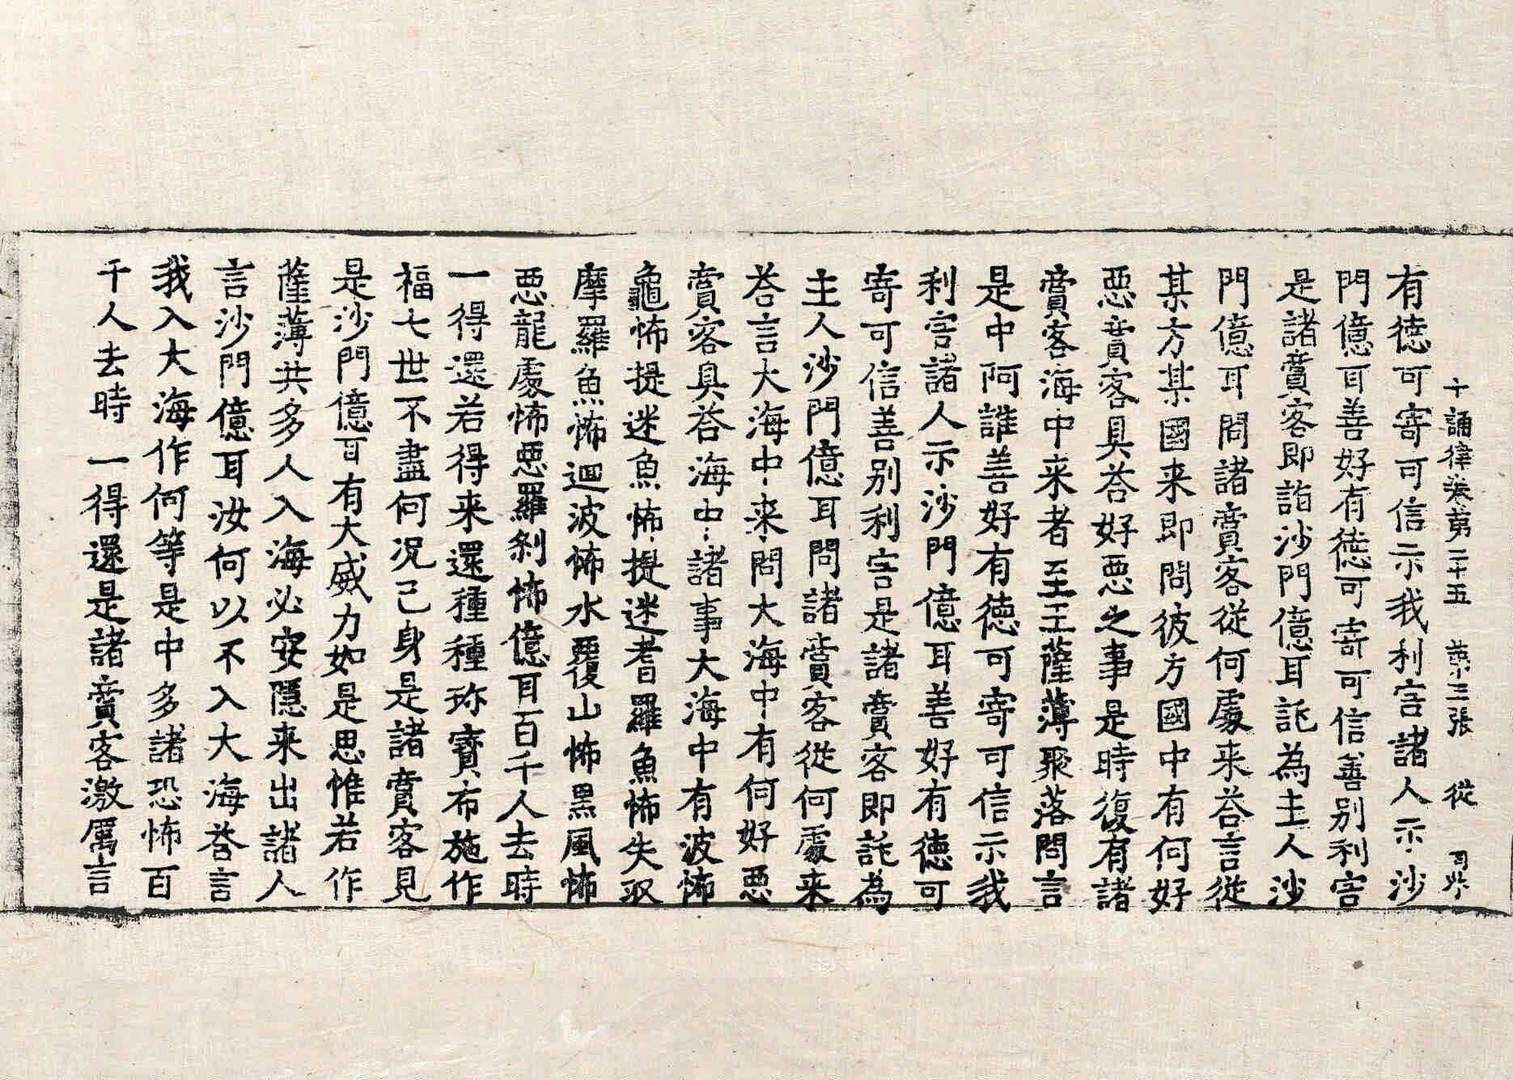 十誦律卷第二十五 第三張 從
有徳可寄可信示我利害諸人示沙
門億耳善好有徳可寄可信善別利害
是諸賈客即詣沙門億耳託為主人沙
門億耳問諸賈客從何處来荅言從
某方某國来即問彼方國中有何好
惡賈客具荅好惡之事是時復有諸
賈客海中来者至王薩薄聚落問言
是中阿誰善好有徳可寄可信示我
利害諸人示沙門億耳善好有徳可
寄可信善別利害是諸賈客即託為
主人沙門億耳問諸賈客從何處来
荅言大海中来問大海中有何好惡
賈客具荅海中諸事大海中有波怖
龜怖提迷魚怖提迷耆羅魚怖失収
摩羅魚怖迴波怖水覆山怖黒風怖
惡龍處怖惡羅刹怖億耳百千人去時
一得還若得来還種種珎寶布施作
福七世不盡何况己身是諸賈客見
是沙門億耳有大威力如是思惟若作
薩薄共多人入海必安隱来出諸人
言沙門億耳汝何以不入大海荅言
我入大海作何等是中多諸恐怖百
千人去時一得還是諸賈客激厲言